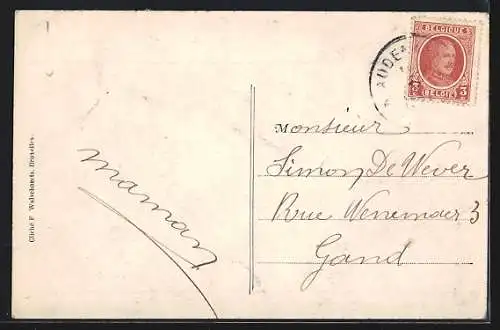 BELGIQUE
3 3
BELGIË
AUDE
Monsieur
Simon De Wever
Rue Wenemaer 3
Gand
maman
Cliché F. Walschaerts, Bruxelles.